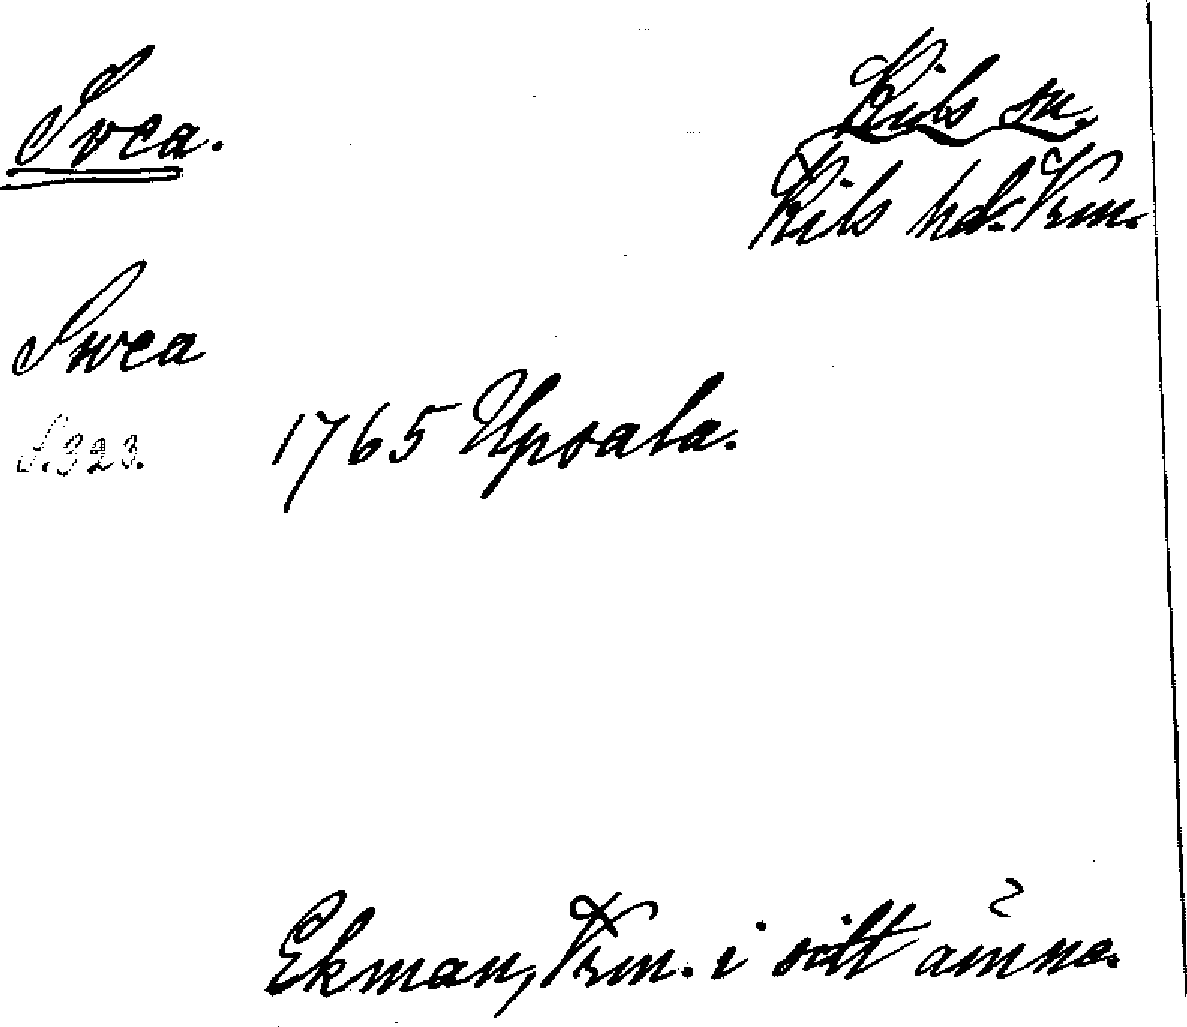 Svea.
Kils sn.
Kils hd. Vrm.
Swea
S. 323.
1765 Upsala.
Ekman, Vrm. i sitt ämne.